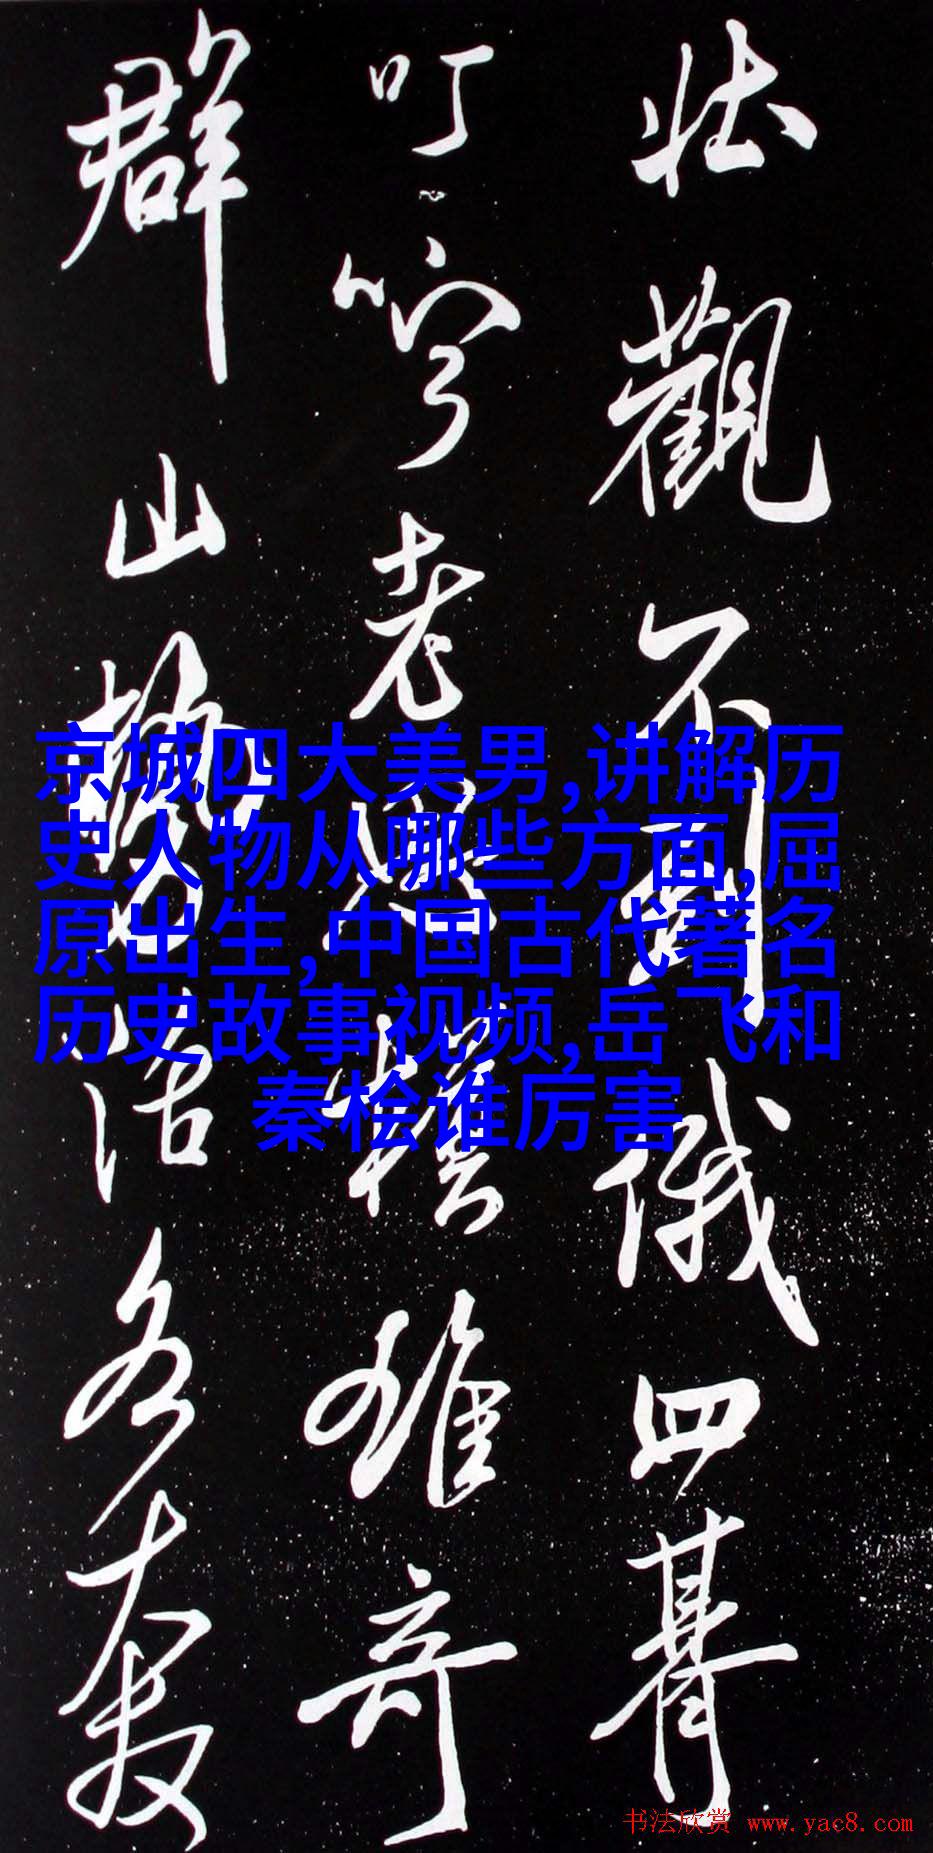 壮觀不到俄四朞
叮嚀老雖奇
群山各
京城四大美男,讲解历
史人物从哪些方面,屈
原出生,中国古代著名
历史故事视频,岳飞和
秦桧谁厉害
书法欣赏 www.yac8.com